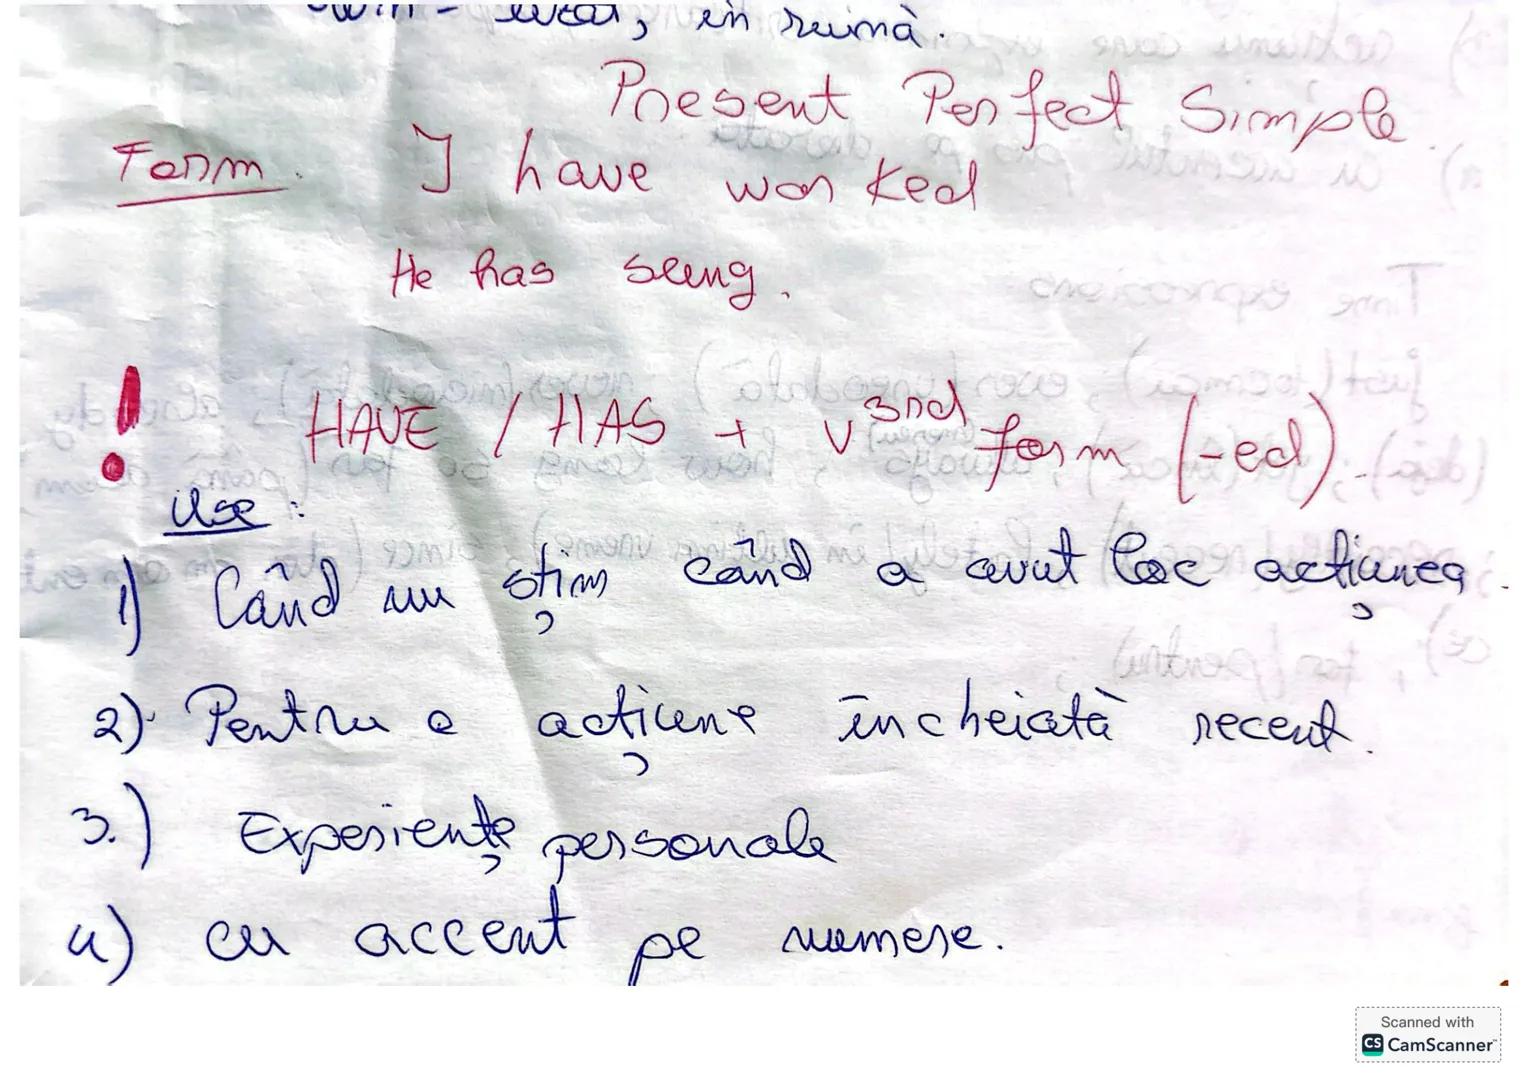 în ruină.
Present Perfect Simple
Form. I have worked
He has seung.
! HAVE / HAS + V 3rd form (-ed).
Use:
1) Când nu știm când a avut loc acțiunea.
2) Pentru o acțiune încheiată recent.
3.) Experiențe personale
4) cu accent pe numere.
Scanned with
CS CamScanner